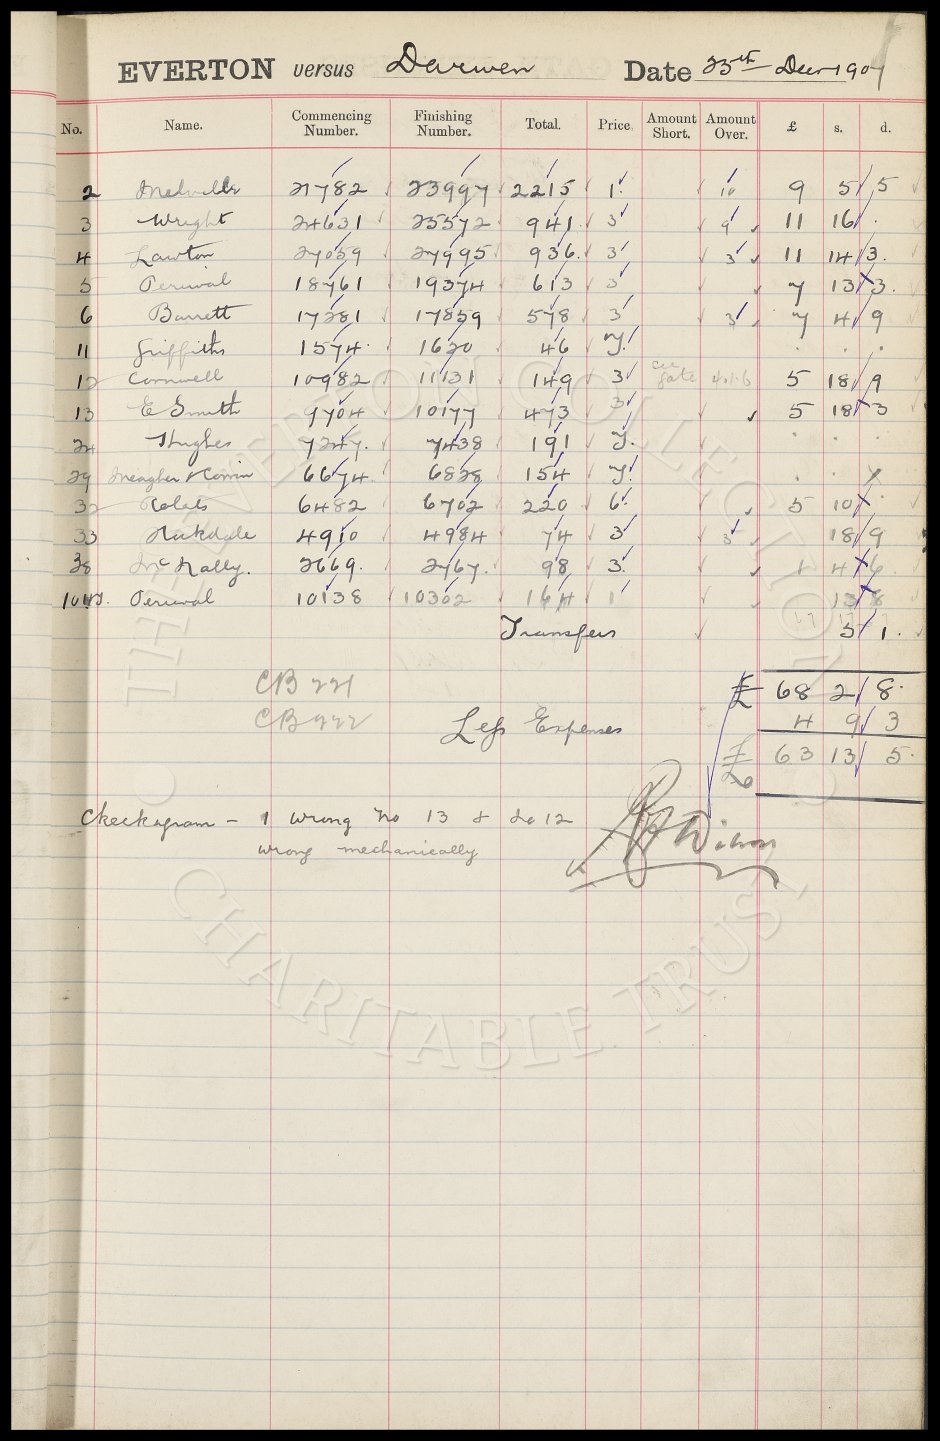 EVERTON versus Darwen Date 25th Decr 1907
No. Name. Commencing Number. Finishing Number. Total. Price Amount Short. Amount Over. £ s. d.
2 Melville 21782 23997 2215 1 10 9 5 5
3 Wright 24631 25572 941 3 9 11 16 .
4 Lawton 27059 27995 936 3 3 11 14 3
5 Percival 18761 19374 613 3 7 13 3
6 Barrett 17281 17859 578 3 3 7 4 9
11 Griffiths 1574 1620 46
12 Cornwell 10982 11131 149 3 gate 4.1.6 5 18 9
13 E Smith 9704 10177 473 3 5 18 3
24 Hughes 7247 7438 191
29 Meagher 6674 6828 154
32 6482 6702 220 6 5 10
33 Rokdale 4910 4984 74 3 3 18 9
38 McNally. 2669. 2767. 98 3 1 4 6
Percival 10138 10302 164 1 13 8
Transfers 5 1
£ 68 2 8
CB 221
CB 222 Less Expenses 4 9 3
£ 63 13 5
Checkagram - 1 wrong No 13 & do 12
wrong mechanically
THE EVERTON COLLECTION CHARITABLE TRUST